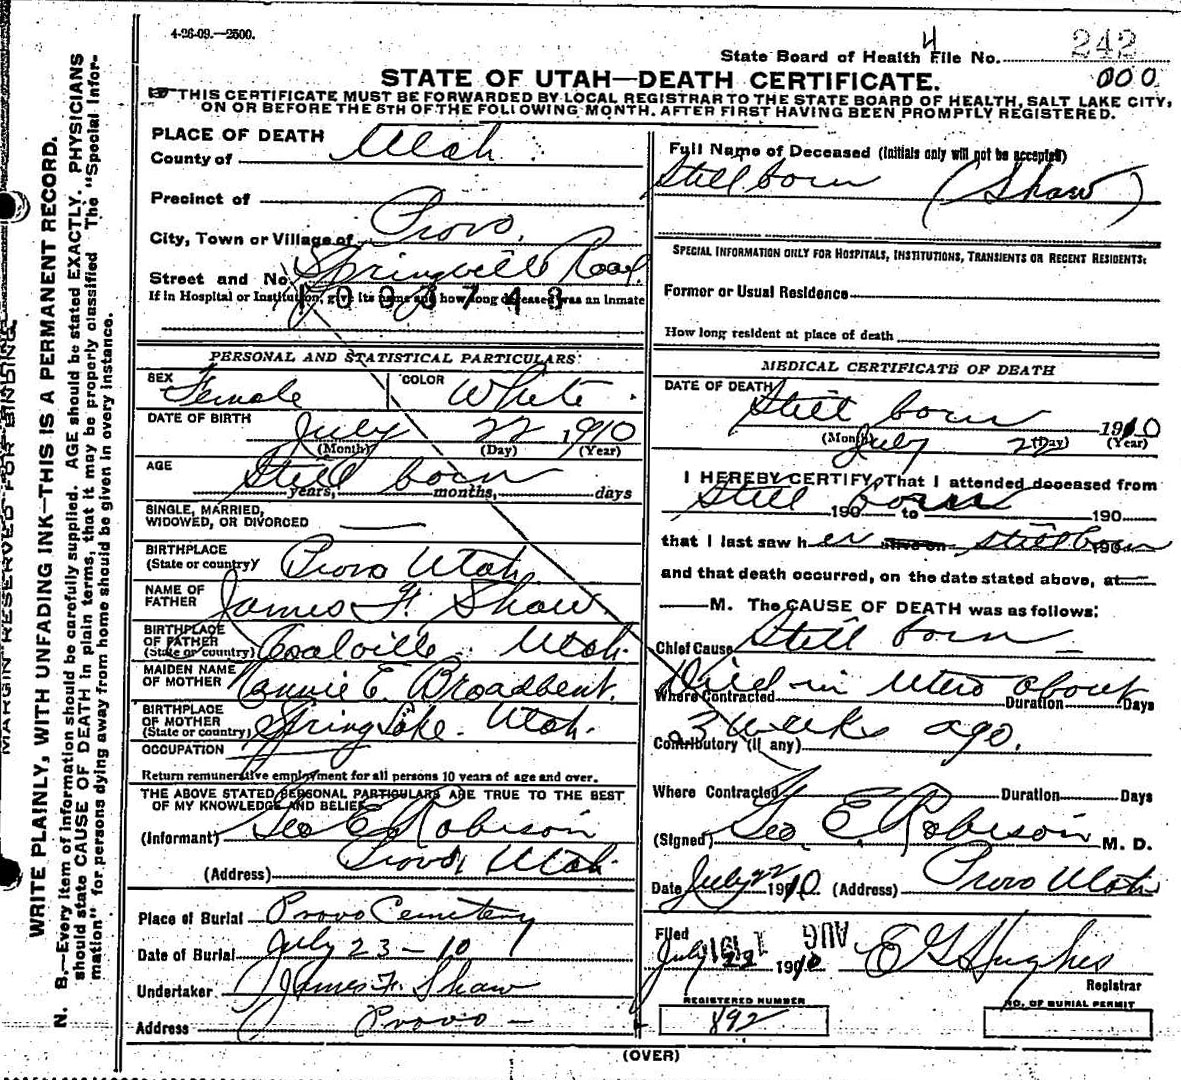 4-26-09.—2500.
State Board of Health File No. 242
4
000
STATE OF UTAH—DEATH CERTIFICATE.
THIS CERTIFICATE MUST BE FORWARDED BY LOCAL REGISTRAR TO THE STATE BOARD OF HEALTH, SALT LAKE CITY,
ON OR BEFORE THE 5TH OF THE FOLLOWING MONTH, AFTER FIRST HAVING BEEN PROMPTLY REGISTERED.
MARGIN RESERVED FOR BINDING.
WRITE PLAINLY, WITH UNFADING INK—THIS IS A PERMANENT RECORD.
N. B.—Every item of information should be carefully supplied. AGE should be stated EXACTLY. PHYSICIANS
should state CAUSE OF DEATH in plain terms, that it may be properly classified The "Special Infor-
mation" for persons dying away from home should be given in every instance.
PLACE OF DEATH
County of Utah.
Precinct of
City, Town or Village of Provo.
Street and No. Springville Road
If in Hospital or Institution, give its name and how long deceased was an inmate
1093743
PERSONAL AND STATISTICAL PARTICULARS
SEX Female COLOR White.
DATE OF BIRTH July 22 1910
(Month) (Day) (Year)
AGE Still born
years, months, days
SINGLE, MARRIED,
WIDOWED, OR DIVORCED —
BIRTHPLACE
(State or country) Provo Utah
NAME OF
FATHER James F. Shaw
BIRTHPLACE
OF FATHER
(State or country) Coalville Utah.
MAIDEN NAME
OF MOTHER Nannie E. Broadbent.
BIRTHPLACE
OF MOTHER
(State or country) Spring Lake. Utah.
OCCUPATION
Return remunerative employment for all persons 10 years of age and over.
THE ABOVE STATED PERSONAL PARTICULARS ARE TRUE TO THE BEST
OF MY KNOWLEDGE AND BELIEF
(Informant) Geo E. Robison
(Address) Provo, Utah.
Place of Burial Provo Cemetery
Date of Burial July 23 - 10
Undertaker James F. Shaw
Address Provo —
Full Name of Deceased (Initials only will not be accepted)
Still born (Shaw)
SPECIAL INFORMATION ONLY FOR HOSPITALS, INSTITUTIONS, TRANSIENTS OR RECENT RESIDENTS:
Former or Usual Residence
How long resident at place of death
MEDICAL CERTIFICATE OF DEATH
DATE OF DEATH Still born 1910
(Month) (Day) (Year)
July 22
I HEREBY CERTIFY, That I attended deceased from
Still born 190 to 190
that I last saw her alive on Still born 190
and that death occurred, on the date stated above, at —
— M. The CAUSE OF DEATH was as follows:
Chief Cause Still born —
Died in utero about
Where Contracted Duration Days
3 weeks ago.
Contributory (if any)
Where Contracted Duration Days
(Signed) Geo E Robison M. D.
Date July 22 1910 (Address) Provo Utah
Filed
AUG 1 1911
July 22 1910 E G Hughes
Registrar
REGISTERED NUMBER
892
NO. OF BURIAL PERMIT
(OVER)